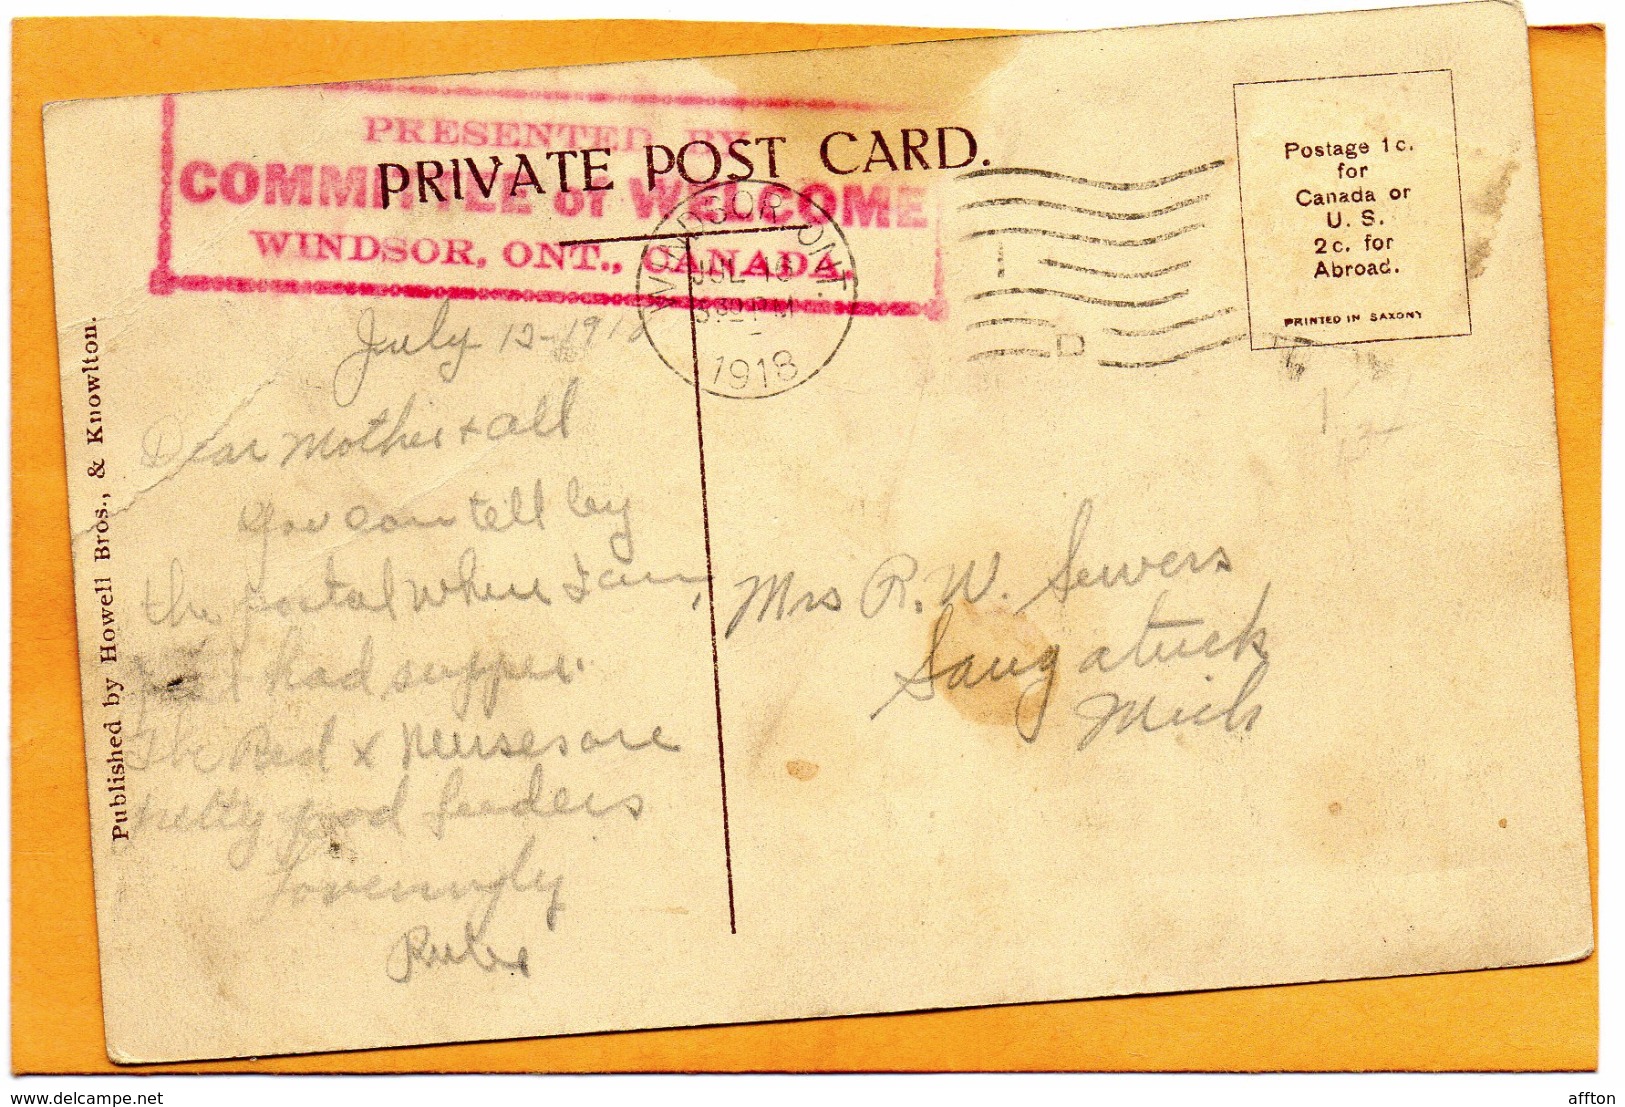 PRESENTED BY
COMMITTEE of WELCOME
WINDSOR, ONT., CANADA.
PRIVATE POST CARD.
WINDSOR ONT.
JUL 16
PM
1918
Postage 1c.
for
Canada or
U. S.
2c. for
Abroad.
PRINTED IN SAXONY
Published by Howell Bros., & Knowlton.
July 12-1918
Dear Mother & all
You can tell by
the postal where I am,
just had supper.
The Red x Nurses are
pretty good feeders
Loveingly
Mrs R. W. Sewers
Saugatuck
Mich
delcampe.net
affton